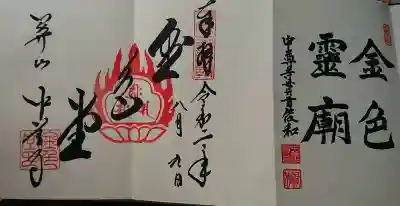 金色
靈廟
中尊寺貫首俊和
奉拝
令和二年
八月九日
金色堂
関山
中尊寺